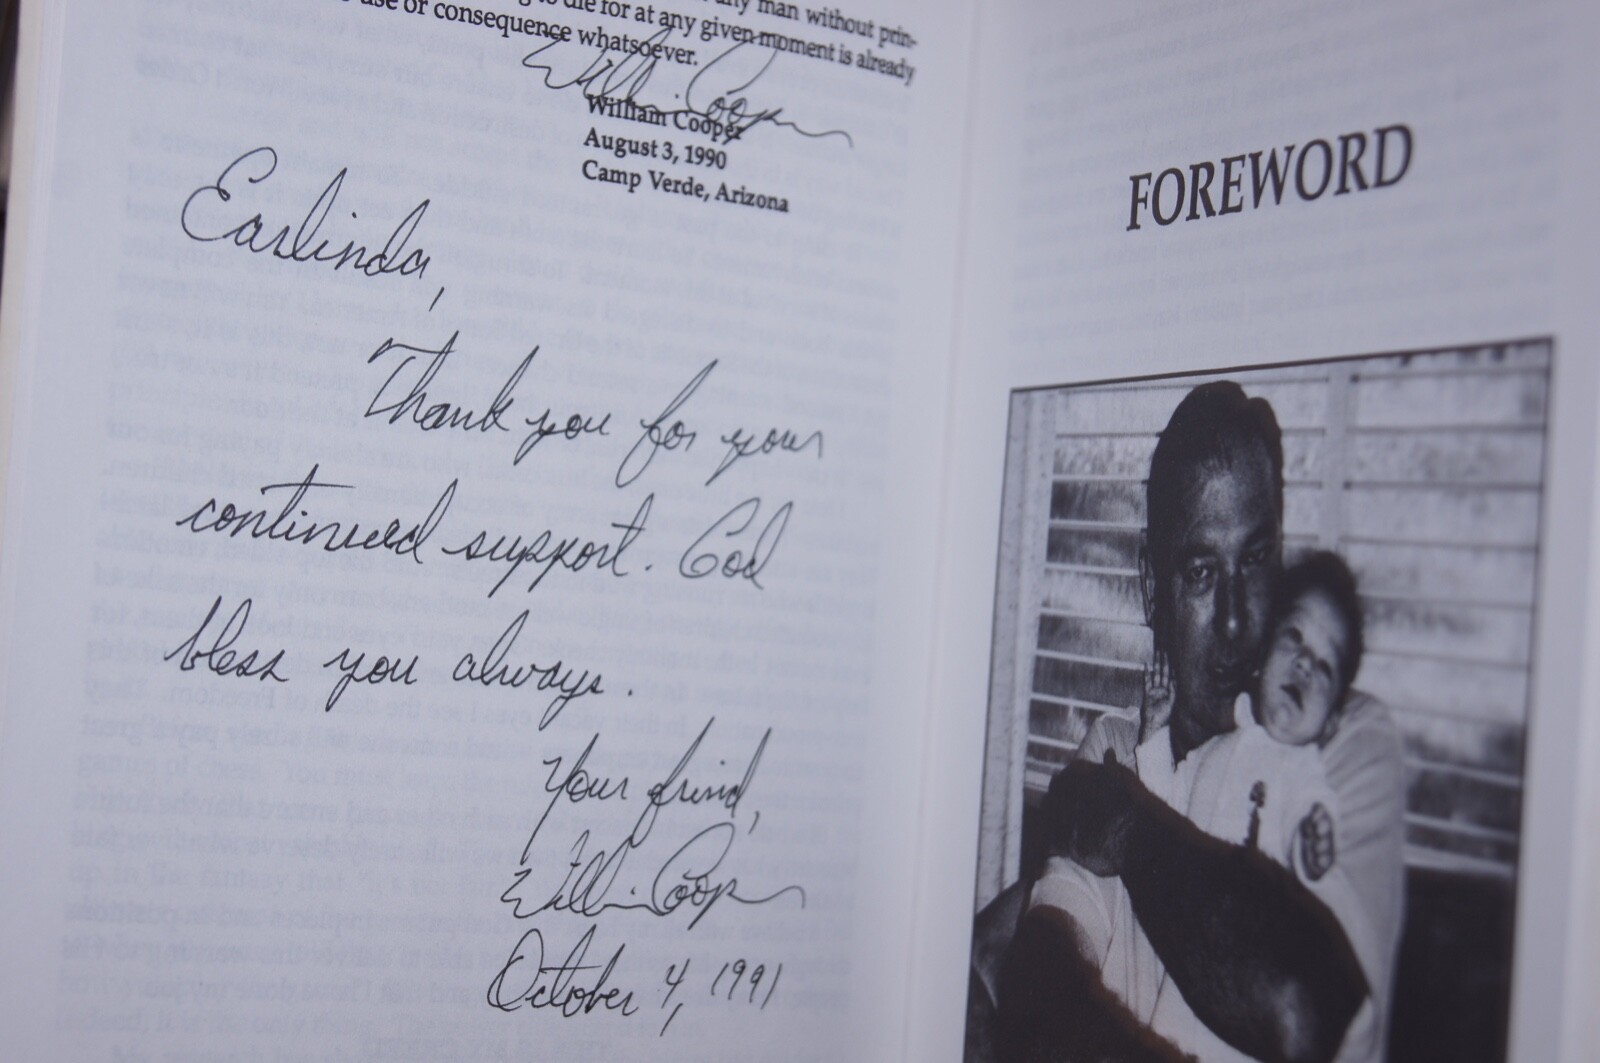 any man without prin-
to die for at any given moment is already
use or consequence whatsoever.
William Cooper
William Cooper
August 3, 1990
Camp Verde, Arizona
Earlinda,
Thank you for your
continued support. God
bless you always.
Your friend,
William Cooper
October 4, 1991
FOREWORD